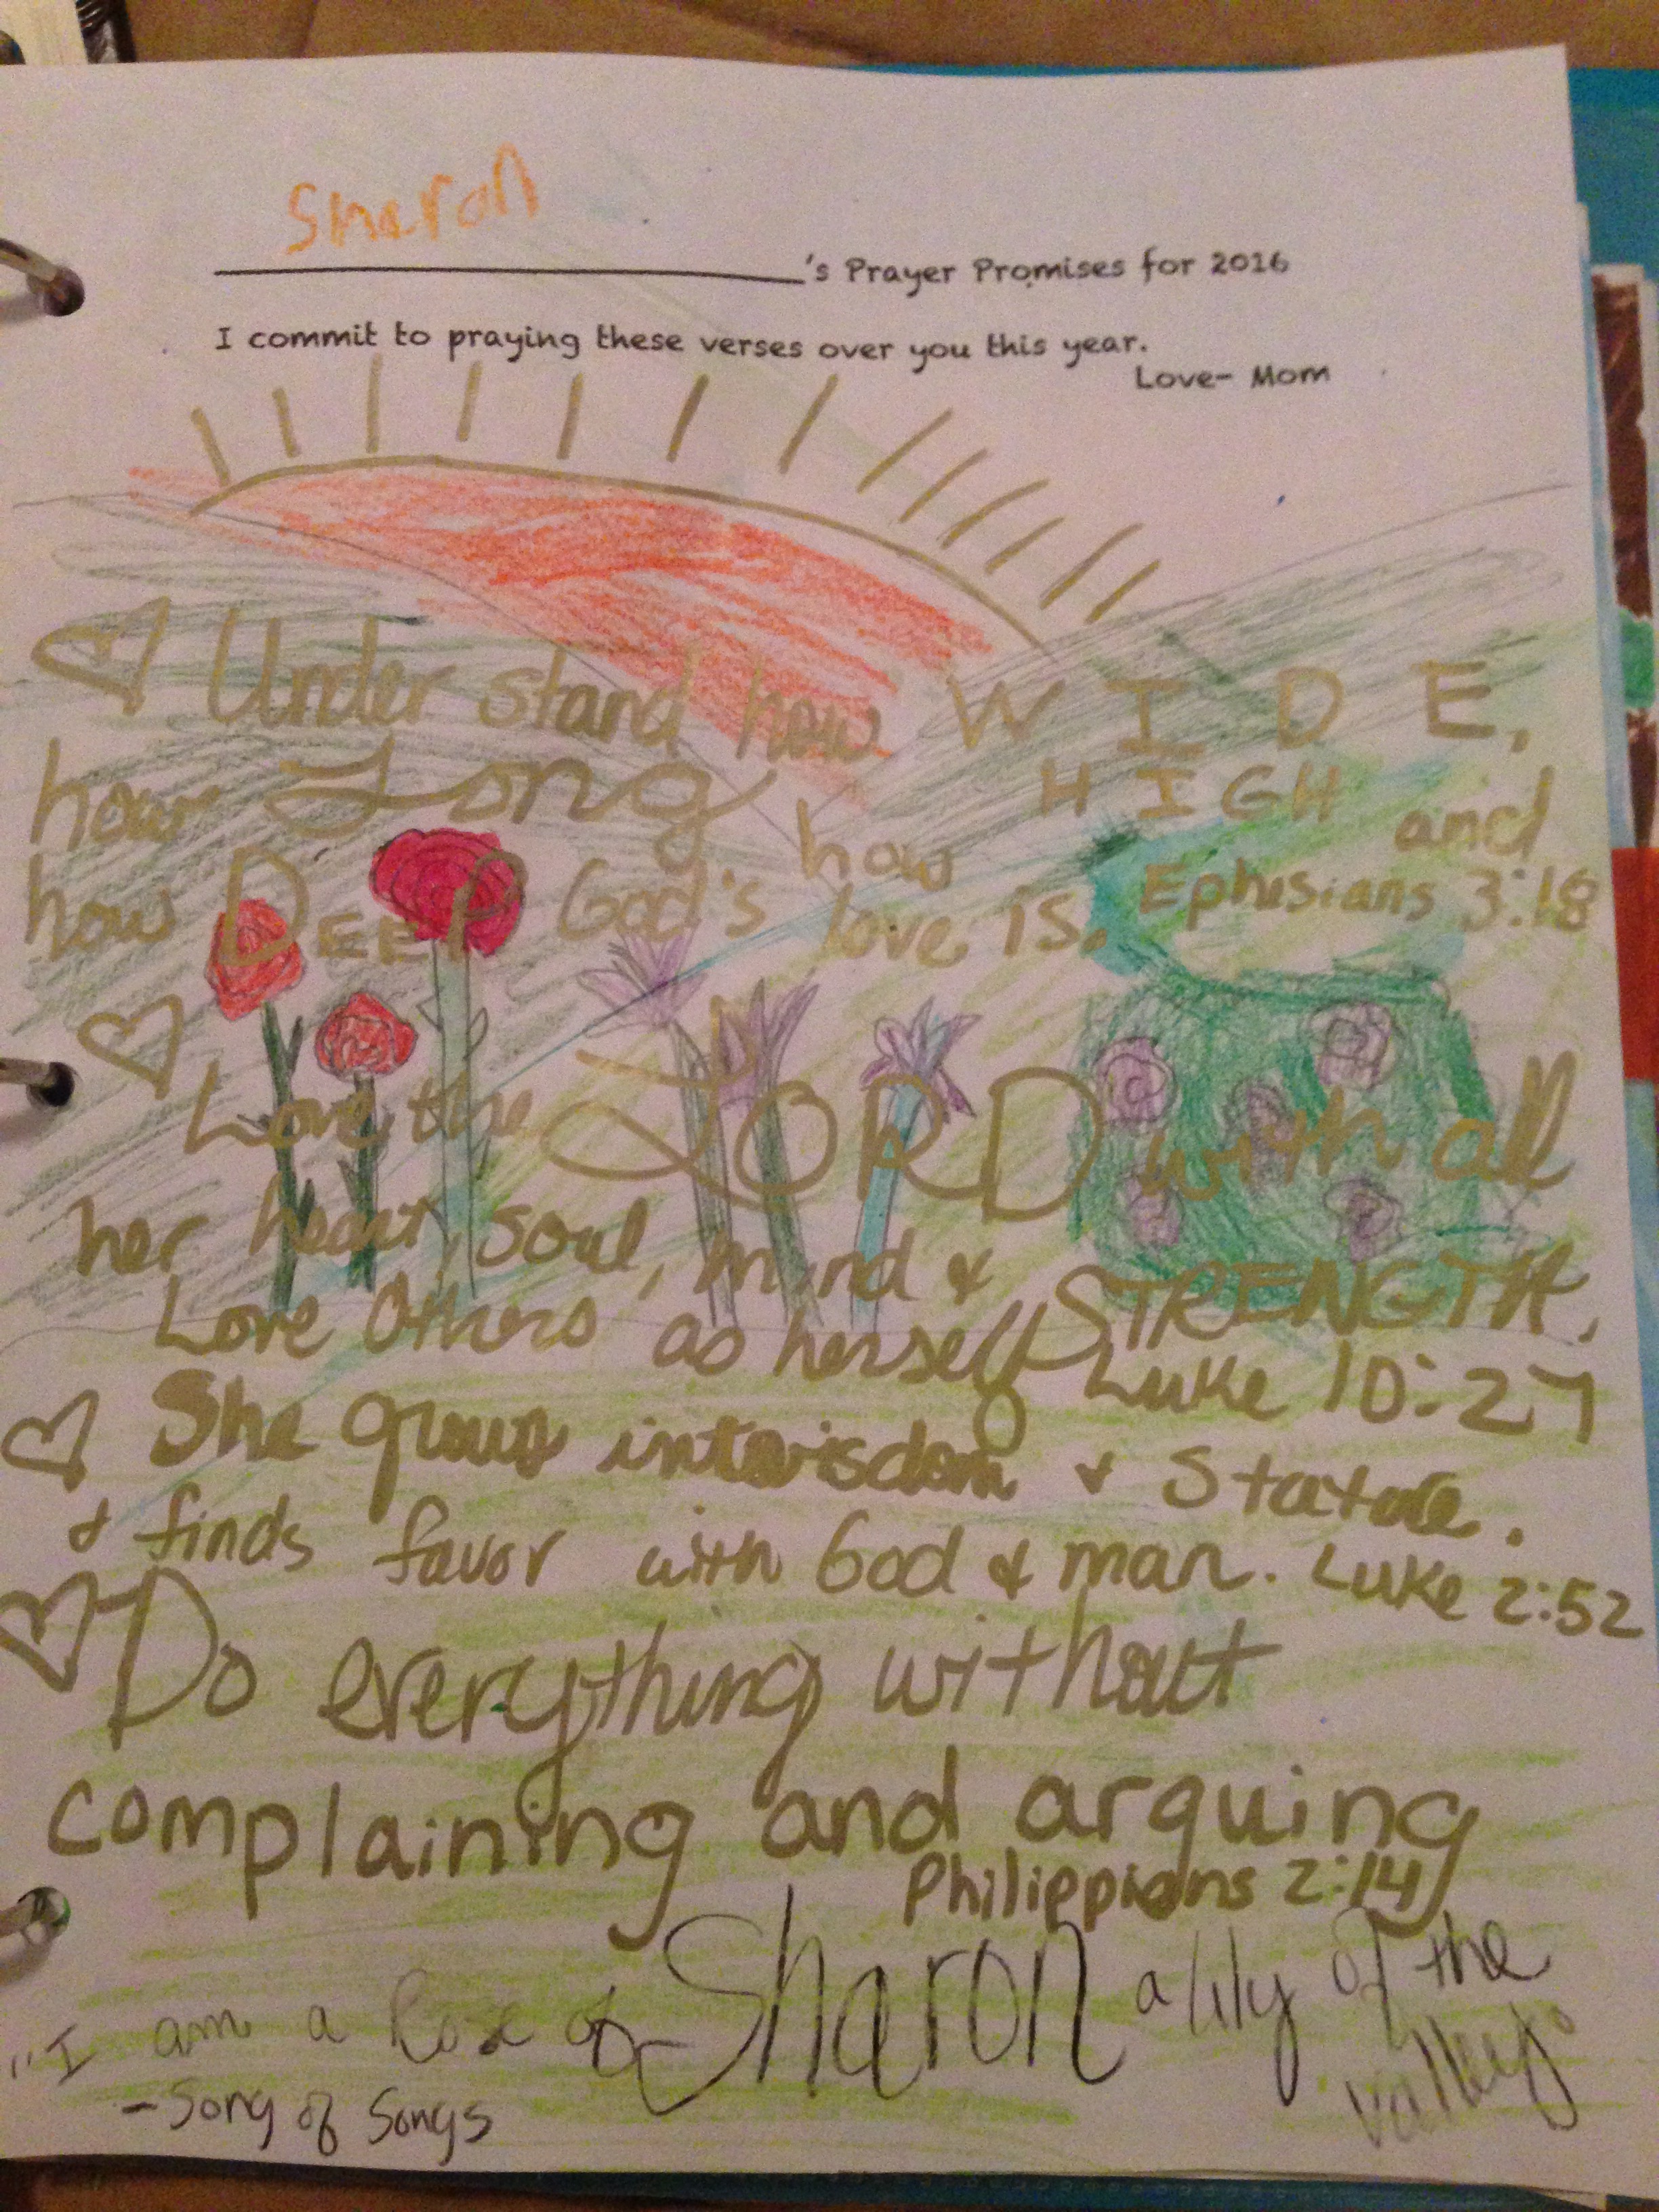 Sharon
's Prayer Promises for 2016
I commit to praying these verses over you this year.
Love- Mom
Understand how WIDE,
how Long how HIGH and
how DEEP God's love is. Ephisians 3:18
Love the LORD with all
her heart, soul, mind & STRENGTH,
Love Others as herself Luke 10:27
She grows in wisdom & Stature.
& finds favor with God & man. Luke 2:52
Do everything without
complaining and arguing
Philippians 2:14
"I am a Rose of Sharon a lily of the valley."
-Song of Songs